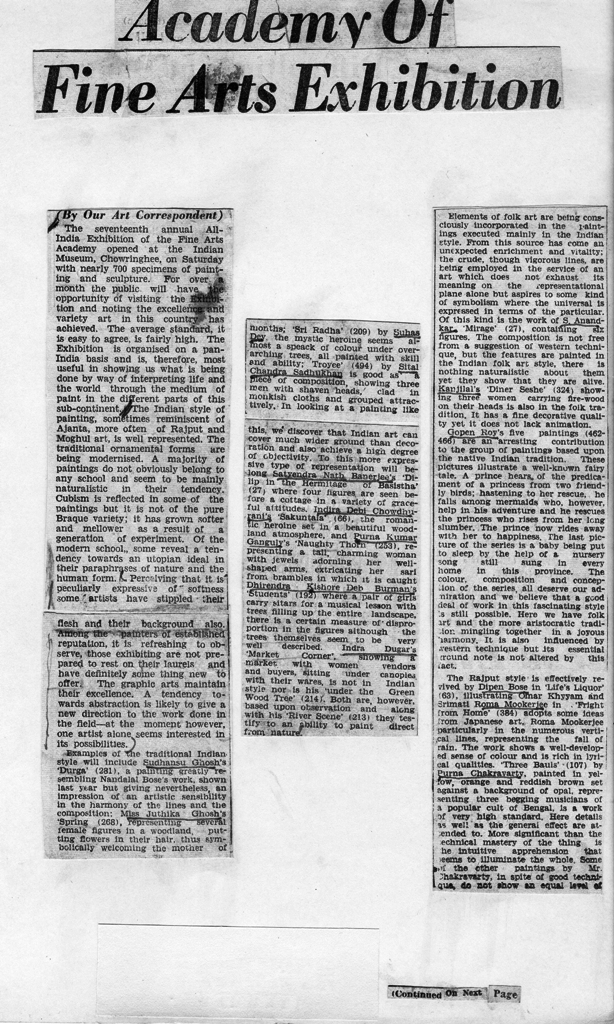 Academy Of
Fine Arts Exhibition
(By Our Art Correspondent)
The seventeenth annual All-
India Exhibition of the Fine Arts
Academy opened at the Indian
Museum, Chowringhee, on Saturday
with nearly 700 specimens of paint-
ing and sculpture. For over a
month the public will have the
opportunity of visiting the Exhibi-
tion and noting the excellence and
variety art in this country has
achieved. The average standard, it
is easy to agree, is fairly high. The
Exhibition is organised on a pan-
India basis and is, therefore, most
useful in showing us what is being
done by way of interpreting life and
the world through the medium of
paint in the different parts of this
sub-continent. The Indian style of
painting, sometimes reminiscent of
Ajanta, more often of Rajput and
Moghul art, is well represented. The
traditional ornamental forms are
being modernised. A majority of
paintings do not obviously belong to
any school and seem to be mainly
naturalistic in their tendency.
Cubism is reflected in some of the
paintings but it is not of the pure
Braque variety; it has grown softer
and mellower as a result of a
generation of experiment. Of the
modern school, some reveal a ten-
dency towards an utopian ideal in
their paraphrases of nature and the
human form. Perceiving that it is
peculiarly expressive of softness
some artists have stippled their
flesh and their background also.
Among the painters of established
reputation, it is refreshing to ob-
serve, those exhibiting are not pre-
pared to rest on their laurels and
have definitely some thing new to
offer. The graphic arts maintain
their excellence. A tendency to-
wards abstraction is likely to give
a new direction to the work done in
the field—at the moment however,
one artist alone seems interested in
its possibilities.
Examples of the traditional Indian
style will include Sudhansu Ghosh's
'Durga' (281), a painting greatly re-
sembling Nandalal Bose's work, shown
last year but giving nevertheless, an
impression of an artistic sensibility
in the harmony of the lines and the
composition; Miss Juthika Ghosh's
'Spring (268), representing several
female figures in a woodland, put-
ting flowers in their hair, thus sym-
bolically welcoming the mother of
months; 'Sri Radha' (209) by Suhas
Dey, the mystic heroine seems al-
most a speack of colour under over-
arching trees, all painted with skill
and ability; 'Troye' (494) by Sital
Chandra Sadhukhan is good as a
piece of composition, showing three
men with shaven heads, clad in
monkish cloths and grouped attrac-
tively. In looking at a painting like
this, we discover that Indian art can
cover much wider ground than deco-
ration and also achieve a high degree
of objectivity. To this more expres-
sive type of representation will be-
long Satyendra Nath Banerjee's 'Di-
lip in the Hermitage of Basistha'
(27) where four figures are seen be-
fore a cottage in a variety of grace-
ful attitudes. Indira Debi Chowdhu-
rani's 'Sakuntala' (66), the roman-
tic heroine set in a beautiful wood-
land atmosphere, and Purna Kumar
Ganguly's 'Naughty Thorn' (253), re-
presenting a tall, charming woman
with jewels adorning her well-
shaped arms, extricating her sari
from brambles in which it is caught
Dhirendra Kishore Deb Burman's
'Students' (192) where a pair of girls
carry sitars for a musical lesson with
trees filling up the entire landscape,
there is a certain measure of dispro-
portion in the figures although the
trees themselves seem to be very
well described. Indra Dugar's
'Market Corner', showing a
market with women vendors
and buyers, sitting under canopies
with their wares, is not in Indian
style nor is his 'under the Green
Wood Tree' (214). Both are, however,
based upon observation and along
with his 'River Scene' (213) they tes-
tify to an ability to paint direct
from nature.
Elements of folk art are being con-
sciously incorporated in the paint-
ings executed mainly in the Indian
style. From this source has come an
unexpected enrichment and vitality;
the crude, though vigorous lines, are
being employed in the service of an
art which does not exhaust its
meaning on the representational
plane alone but aspires to some kind
of symbolism where the universal is
expressed in terms of the particular.
Of this kind is the work of S. Anand-
kar, 'Mirage' (27), containing six
figures. The composition is not free
from a suggestion of western techni-
que, but the features are painted in
the Indian folk art style, there is
nothing naturalistic about them
yet they show that they are alive.
Kanjilal's 'Diner Seshe' (324) show-
ing three women carrying fire-wood
on their heads is also in the folk tra-
dition, It has a fine decorative quali-
ty yet it does not lack animation.
Gopen Roy's five paintings (462-
466) are an arresting contribution
to the group of paintings based upon
the native Indian tradition. These
pictures illustrate a well-known fairy
tale. A prince hears of the predica-
ment of a princess from two friend-
ly birds; hastening to her rescue, he
falls among mermaids who, however,
help in his adventure and he rescues
the princess who rises from her long
slumber. The prince now rides away
with her to happiness. The last pic-
ture of the series is a baby being put
to sleep by the help of a nursery
song still sung in every
home in this province. The
colour, composition and concep-
tion of the series, all deserve our ad-
miration and we believe that a good
deal of work in this fascinating style
is still possible. Here we have folk
art and the more aristocratic tradi-
tion mingling together in a joyous
harmony. It is also influenced by
western technique but its essential
ground note is not altered by this
fact.
The Rajput style is effectively re-
vived by Dipen Bose in 'Life's Liquor'
(63), illustrating Omar Khyyam and
Srimati Roma Mookerjee in 'Fright
from Home' (384) adopts some ideas
from Japanese art. Roma Mookerjee
particularly in the numerous verti-
cal lines, representing the fall of
rain. The work shows a well-develop-
ed sense of colour and is rich in lyri-
cal qualities. 'Three Bauls' (107) by
Purna Chakravarty, painted in yel-
low, orange and reddish brown set
against a background of opal, repre-
senting three begging musicians of
a popular cult of Bengal, is a work
of very high standard. Here details
as well as the general effect are at-
tended to. More significant than the
technical mastery of the thing is
the intuitive apprehension that
seems to illuminate the whole. Some
of the other paintings by Mr.
Chakravarty, in spite of good techni-
que, do not show an equal level of
(Continued On Next Page